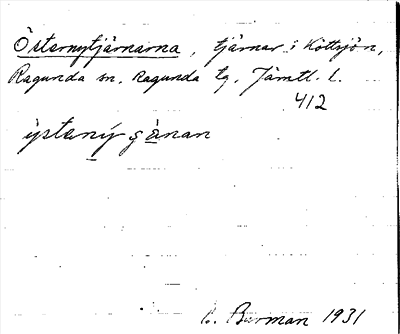 Östernytjärnarna, tjärnar i Kottsjön,
Ragunda sn. Ragunda tg. Jämtl. l.
412
ỳstąný ʂànan
B. Burman 1931